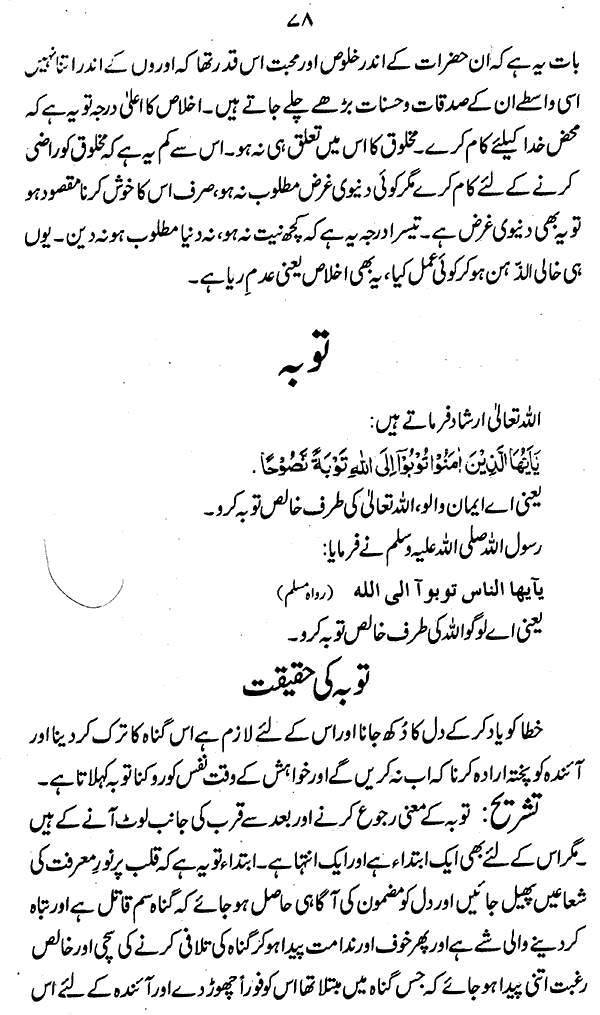 ۷۸
بات یہ ہے کہ ان حضرات کے اندر خلوص اور محبت اس قدر تھا کہ اوروں کے اندر اتنا نہیں
اسی واسطے ان کے صدقات و حسنات بڑھے چلے جاتے ہیں۔ اخلاص کا اعلیٰ درجہ تو یہ ہے کہ
محض خدا کیلئے کام کرے۔ مخلوق کا اس میں تعلق ہی نہ ہو۔ اس سے کم یہ ہے کہ مخلوق کو راضی
کرنے کے لئے کام کرے مگر کوئی دنیوی غرض مطلوب نہ ہو، صرف اس کا خوش کرنا مقصود ہو
تو یہ بھی دنیوی غرض ہے۔ تیسرا درجہ یہ ہے کہ کچھ نیت نہ ہو، نہ دنیا مطلوب ہو نہ دین۔ یوں
ہی خالی الذّہن ہو کر کوئی عمل کیا، یہ بھی اخلاص یعنی عدمِ ریا ہے۔
توبہ
اللہ تعالیٰ ارشاد فرماتے ہیں:
یٰۤاَیُّهَا الَّذِیْنَ اٰمَنُوْا تُوْبُوْۤا اِلَی اللّٰهِ تَوْبَةً نَّصُوْحًا.
یعنی اے ایمان والو، اللہ تعالیٰ کی طرف خالص توبہ کرو۔
رسول اللہ صلی اللہ علیہ وسلم نے فرمایا:
یٰآیها الناس توبوآ الی الله (رواہ مسلم)
یعنی اے لوگو اللہ کی طرف خالص توبہ کرو۔
توبہ کی حقیقت
خطا کو یاد کر کے دل کا دُکھ جانا اور اس کے لئے لازم ہے اس گناہ کا ترک کر دینا اور
آئندہ کو پختہ ارادہ کرنا کہ اب نہ کریں گے اور خواہش کے وقت نفس کو روکنا توبہ کہلاتا ہے۔
تشریح: توبہ کے معنی رجوع کرنے اور بعد سے قرب کی جانب لوٹ آنے کے ہیں
۔ مگر اس کے لئے بھی ایک ابتداء ہے اور ایک انتہا ہے۔ ابتداء تو یہ ہے کہ قلب پر نورِ معرفت کی
شعاعیں پھیل جائیں اور دل کو مضمون کی آگاہی حاصل ہو جائے کہ گناہ سم قاتل ہے اور تباہ
کر دینے والی شے ہے اور پھر خوف اور ندامت پیدا ہو کر گناہ کی تلافی کرنے کی سچی اور خالص
رغبت اتنی پیدا ہو جائے کہ جس گناہ میں مبتلا تھا اس کو فوراً چھوڑ دے اور آئندہ کے لئے اس